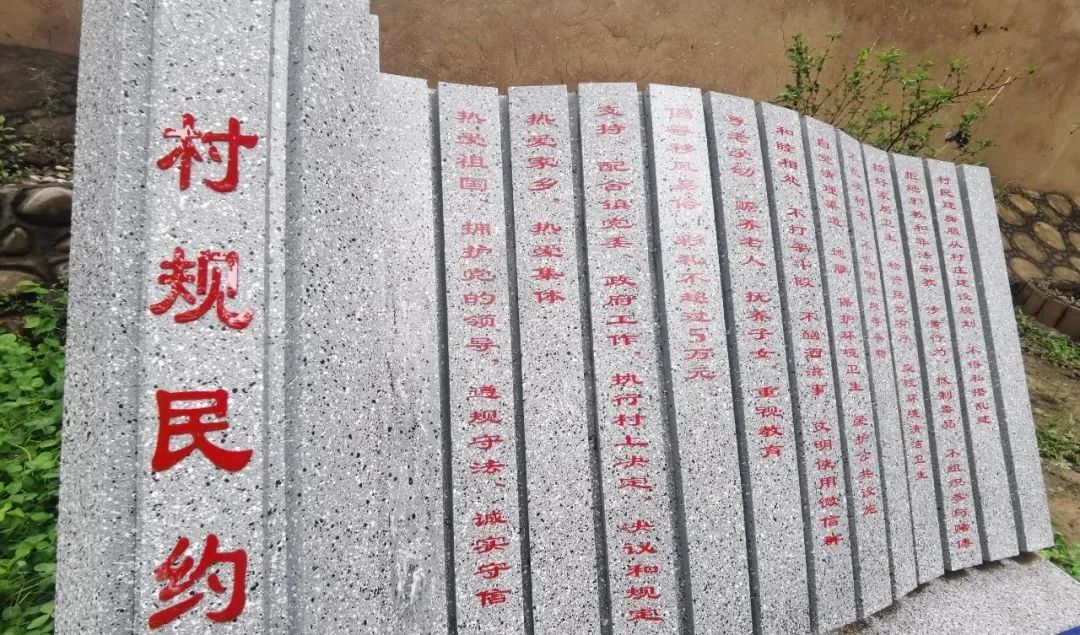 村规民约
热爱祖国，拥护党的领导，遵规守法、诚实守信
热爱家乡，热爱集体
支持、配合镇党委、政府工作，执行村上决定、决议和规定
倡导移风易俗 彩礼不超过5万元
孝老爱幼 赡养老人、抚养子女，重视教育
和睦相处 不打架斗殴 不酗酒滋事 文明使用微信群
自觉清理渠道、地膜 保护环境卫生 爱护公共设施
搞好家居卫生 物品摆放有序 环境清洁卫生
拒绝邪教和非法宗教 涉黄行为 抵制毒品 不组织参与赌博
村民建房服从村庄建设规划 不得私搭乱建